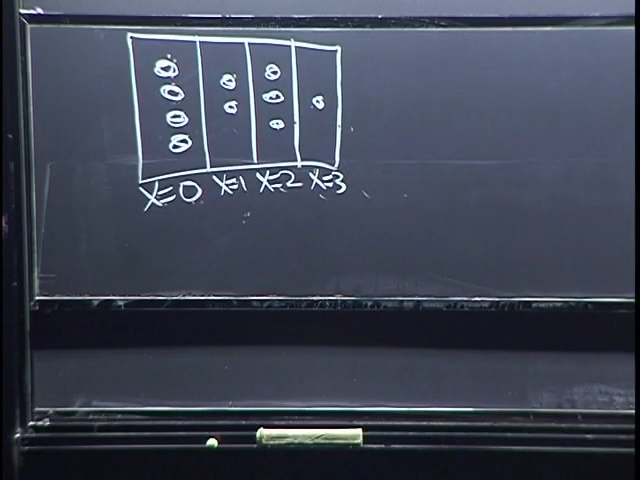 X=0 X=1 X=2 X=3